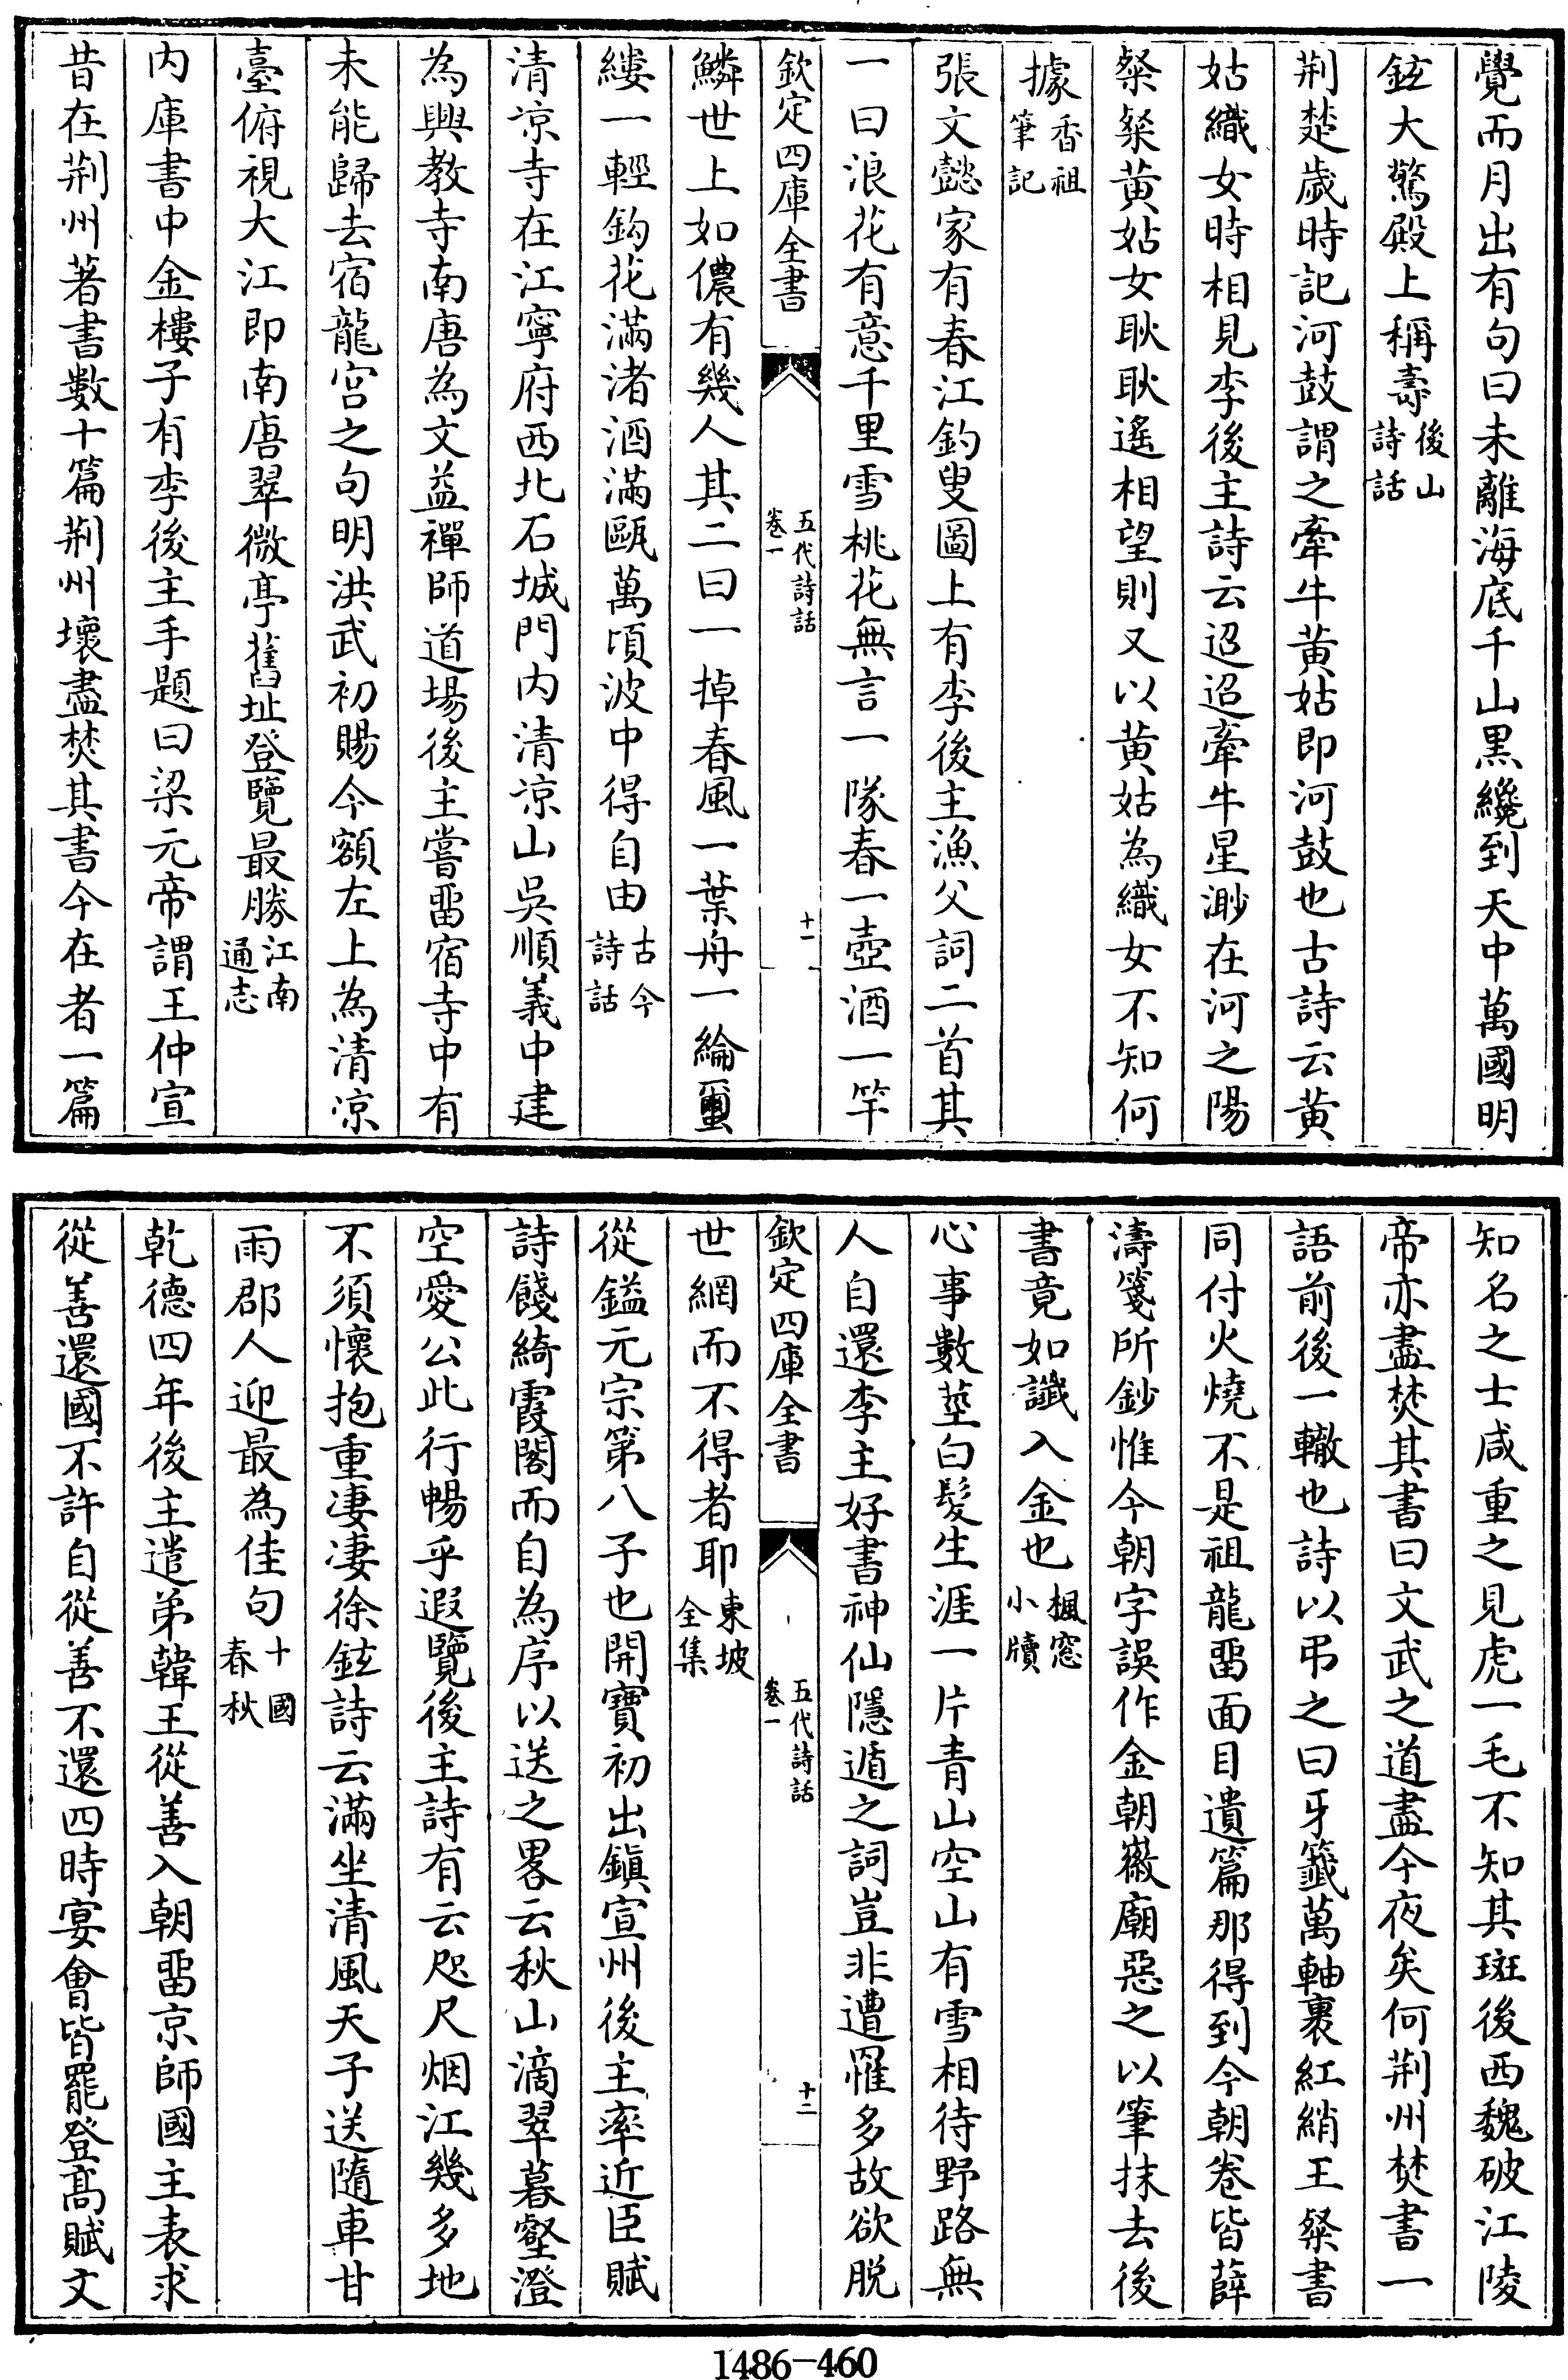 覺而月出有句曰未離海底千山黒纔到天中萬國明
鉉大驚殿上稱壽後山詩話
荆楚歲時記河鼓謂之牽牛黄姑即河鼓也古詩云黄
姑織女時相見李後主詩云迢迢牽牛星渺在河之陽
粲粲黄姑女耿耿遙相望則又以黄姑為織女不知何
據香祖筆記
張文懿家有春江釣叟圖上有李後主漁父詞二首其
一曰浪花有意千里雪桃花無言一隊春一壺酒一竿
欽定四庫全書 五代詩話卷一 十一
鱗世上如儂有幾人其二曰一掉春風一葉舟一綸蠒
縷一輕鈎花滿渚酒滿甌萬頃波中得自由古今詩話
清凉寺在江寧府西北石城門内清凉山吳順義中建
為興教寺南唐為文益禪師道場後主嘗畱宿寺中有
未能歸去宿龍宫之句明洪武初賜今額左上為清凉
臺俯視大江即南唐翠微亭舊址登覽最勝江南通志
内庫書中金樓子有李後主手題曰梁元帝謂王仲宣
昔在荆州著書數十篇荆州壞盡焚其書今在者一篇
知名之士咸重之見虎一毛不知其斑後西魏破江陵
帝亦盡焚其書曰文武之道盡今夜矣何荆州焚書一
語前後一轍也詩以弔之曰牙籤萬軸裹紅綃王粲書
同付火燒不是祖龍畱面目遺篇那得到今朝卷皆薛
濤箋所鈔惟今朝字誤作金朝徽廟惡之以筆抹去後
書竟如讖入金也楓窓小牘
心事數莖白髮生涯一片青山空山有雪相待野路無
人自還李主好書神仙隱遁之詞豈非遭罹多故欲脱
欽定四庫全書 五代詩話卷一 十二
世網而不得者耶東坡全集
從鎰元宗第八子也開寶初出鎮宣州後主率近臣賦
詩餞綺霞閣而自為序以送之畧云秋山滴翠暮壑澄
空愛公此行暢乎遐覽後主詩有云咫尺烟江幾多地
不須懷抱重凄凄徐鉉詩云滿坐清風天子送隨車甘
雨郡人迎最為佳句十國春秋
乾德四年後主遣弟韓王從善入朝畱京師國主表求
從善還國不許自從善不還四時宴會皆罷登髙賦文
1486-460